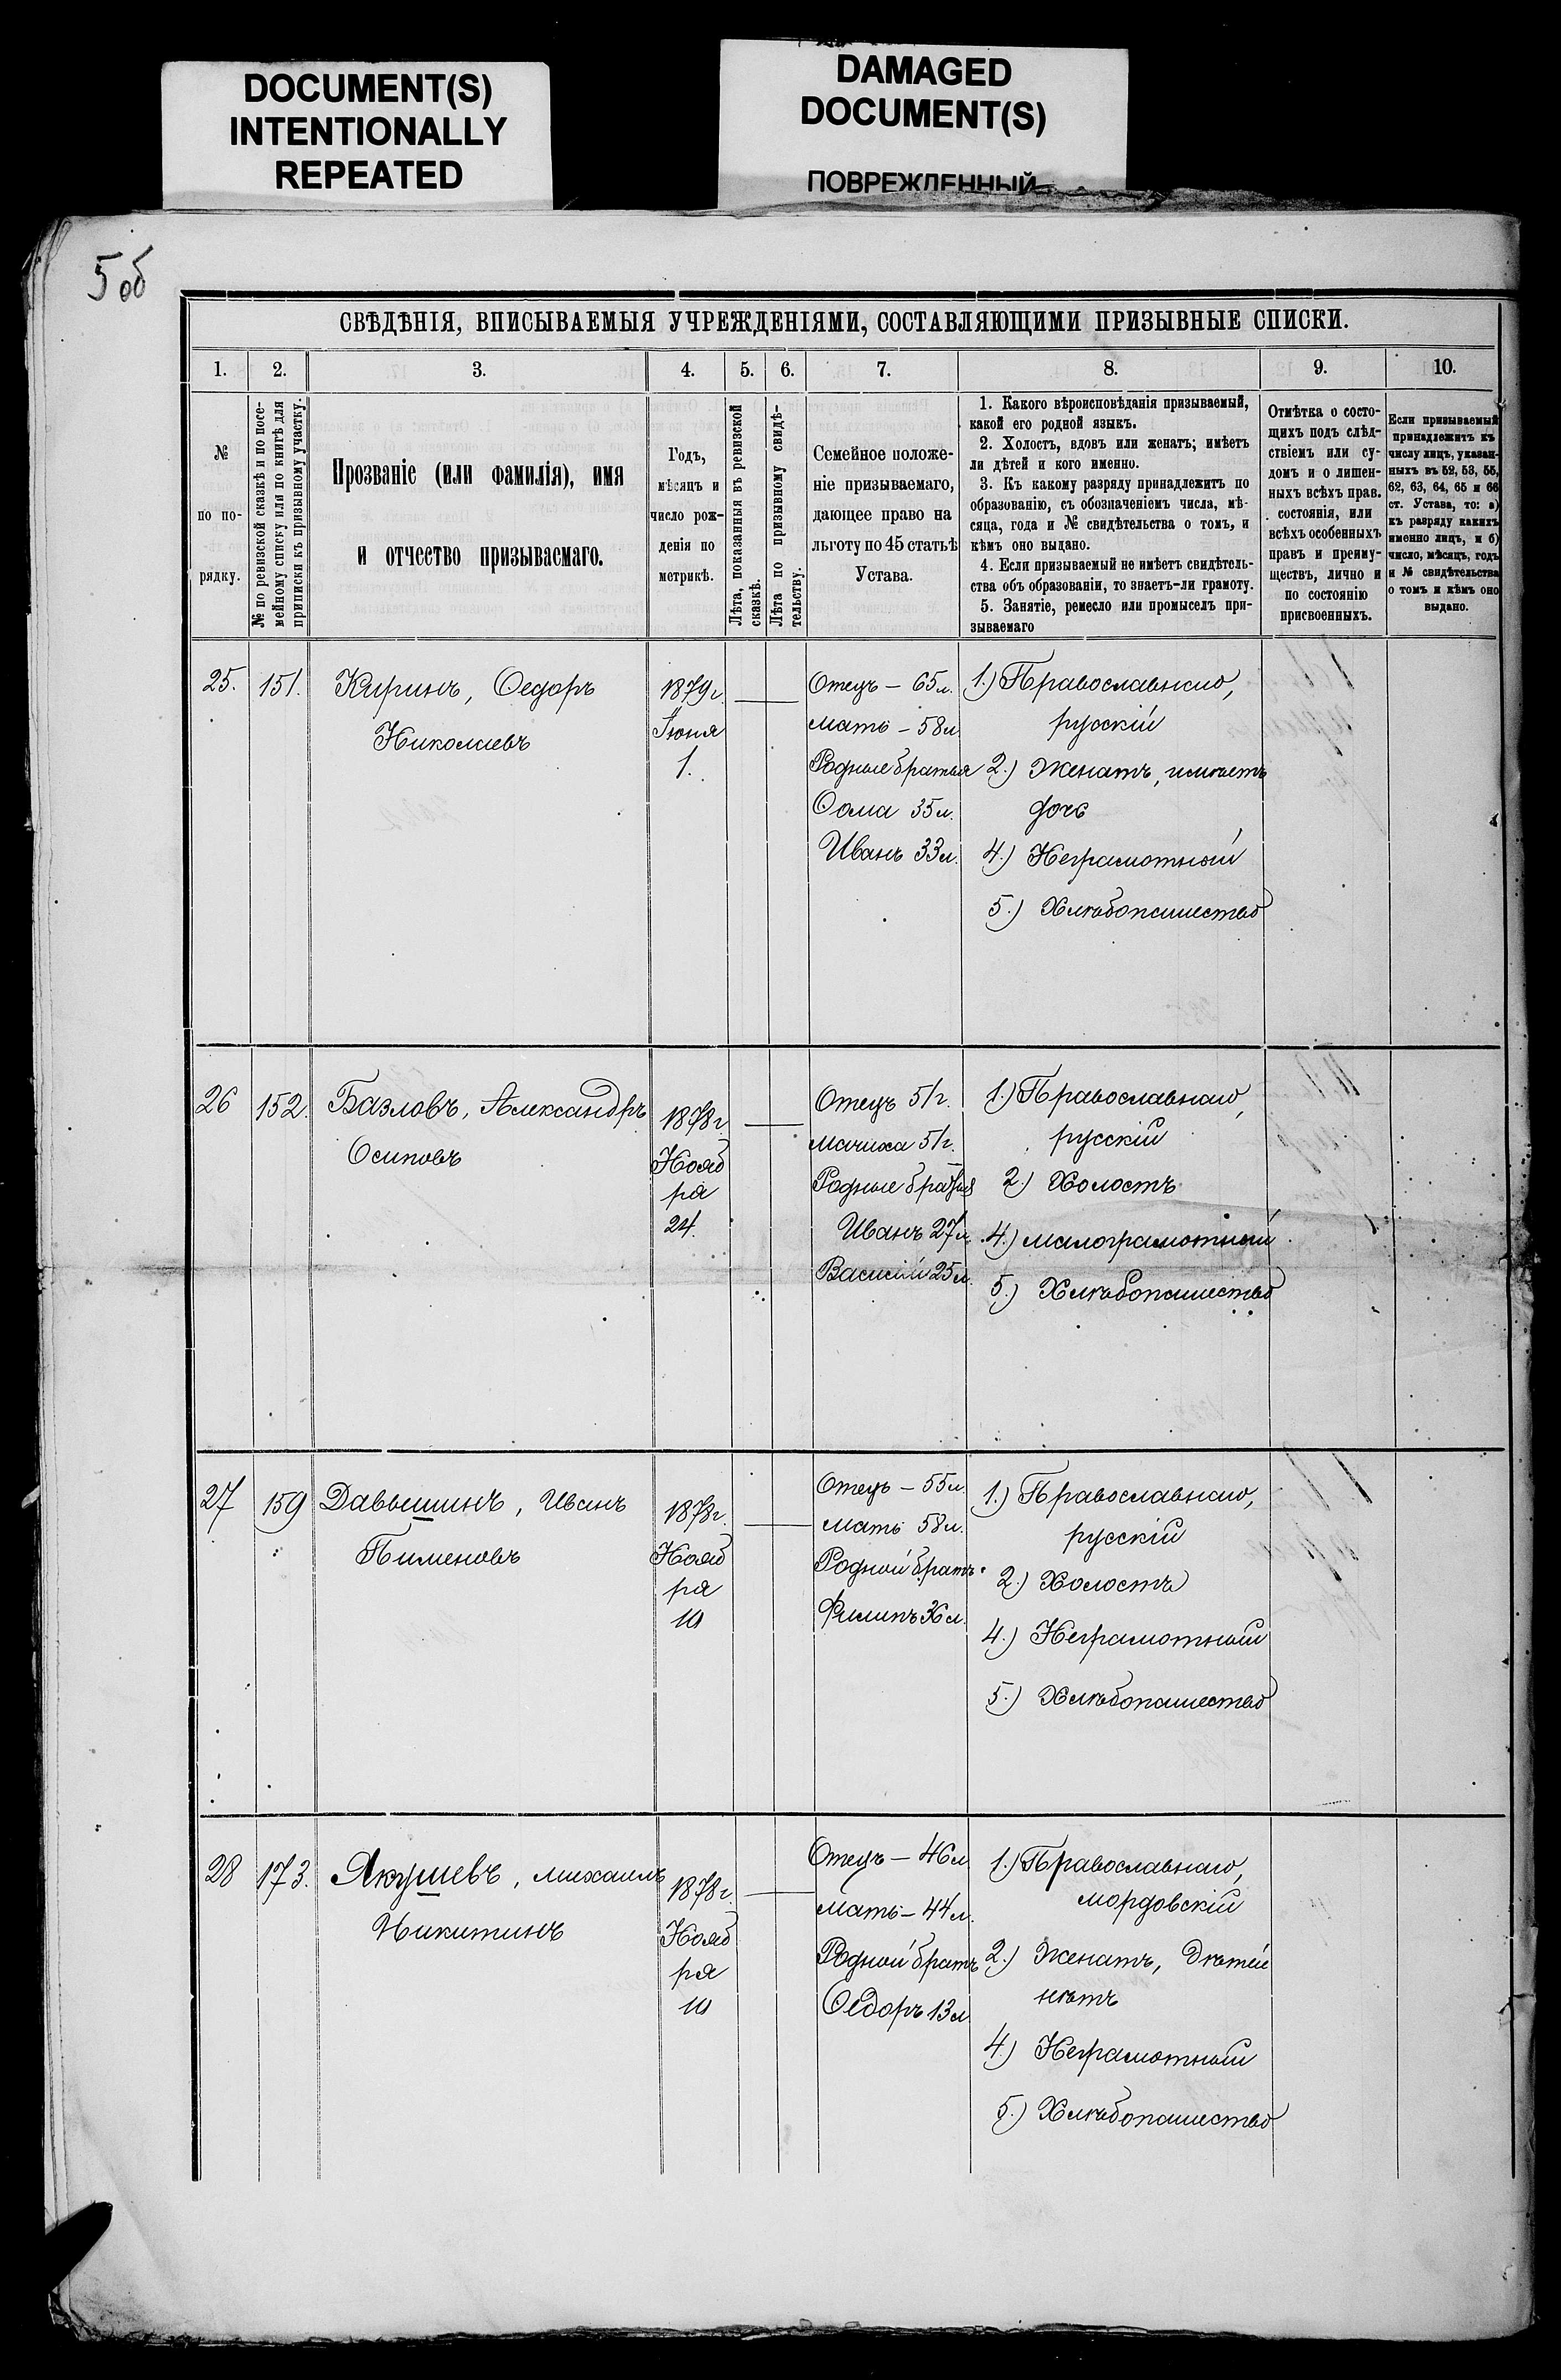 DOCUMENT(S)
INTENTIONALLY
REPEATED
DAMAGED
DOCUMENT(S)
ПОВРЕЖДЕННЫЙ
5 об
СВѢДѢНІЯ, ВПИСЫВАЕМЫЯ УЧРЕЖДЕНІЯМИ, СОСТАВЛЯЮЩИМИ ПРИЗЫВНЫЕ СПИСКИ.
1. 2. 3. 4. 5. 6. 7. 8. 9. 10.
№
по по-
рядку.
№ по ревизской сказкѣ и по посе-
мейному списку или по книгѣ для
приписки къ призывному участку.
Прозваніе (или фамилія), имя
и отчество призываемаго.
Годъ,
мѣсяцъ и
число рож-
денія по
метрикѣ.
Лѣта, показанныя въ ревизской
сказкѣ.
Лѣта по призывному свидѣ-
тельству.
Семейное положе-
ніе призываемаго,
дающее право на
льготу по 45 статьѣ
Устава.
1. Какого вѣроисповѣданія призываемый,
какой его родной языкъ.
2. Холостъ, вдовъ или женатъ; имѣетъ
ли дѣтей и кого именно.
3. Къ какому разряду принадлежитъ по
образованію, съ обозначеніемъ числа, мѣ-
сяца, года и № свидѣтельства о томъ, и
кѣмъ оно выдано.
4. Если призываемый не имѣетъ свидѣтель-
ства объ образованіи, то знаетъ-ли грамоту.
5. Занятіе, ремесло или промыселъ при-
зываемаго
Отмѣтка о состо-
ящихъ подъ слѣд-
ствіемъ или су-
домъ и о лишен-
ныхъ всѣхъ прав.
состоянія, или
всѣхъ особенныхъ
правъ и преиму-
ществъ, лично и
по состоянію
присвоенныхъ.
Если призываемый
принадлежитъ къ
числу лицъ, указан-
ныхъ въ 52, 53, 55,
62, 63, 64, 65 и 66
ст. Устава, то: а)
къ разряду какихъ
именно лицъ, и б)
число, мѣсяцъ, годъ
и № свидѣтельства
о томъ и кѣмъ оно
выдано.
25. 151. Киринъ, Ѳедоръ
Николаевъ
1879 г.
Іюня
1.
Отецъ – 65 л.
мать – 58 л.
Родные братья
Ѳома 35 л.
Иванъ 33 л.
1.) Православнаго,
русскій
2.) Женатъ, имѣетъ
дочь
4.) Неграмотный
5.) Хлѣбопашество
26 152. Базловъ, Александръ
Осиповъ
1878 г.
Нояб
ря
24.
Отецъ 51 г.
мачиха 51 г.
Родные братья
Иванъ 27 л.
Василій 25 л.
1.) Православнаго,
русскій
2.) Холостъ
4.) малограмотный
5.) Хлѣбопашество
27 159 Давышинъ, Иванъ
Пименовъ
1878 г.
Нояб
ря
10
Отецъ – 55 л.
мать 58 л.
Родной братъ
Филипъ 36 л.
1.) Православнаго,
русскій
2.) Холостъ
4.) Неграмотный
5.) Хлѣбопашество
28 173. Якушевъ, михаилъ
Никитинъ
1878 г.
Нояб
ря
10
Отецъ – 46 л
мать – 44 л.
Родной братъ
Ѳедоръ 13 л
1.) Православнаго,
мордовскій
2.) Женатъ, Дѣтей
нѣтъ
4.) Неграмотный
5.) Хлѣбопашество